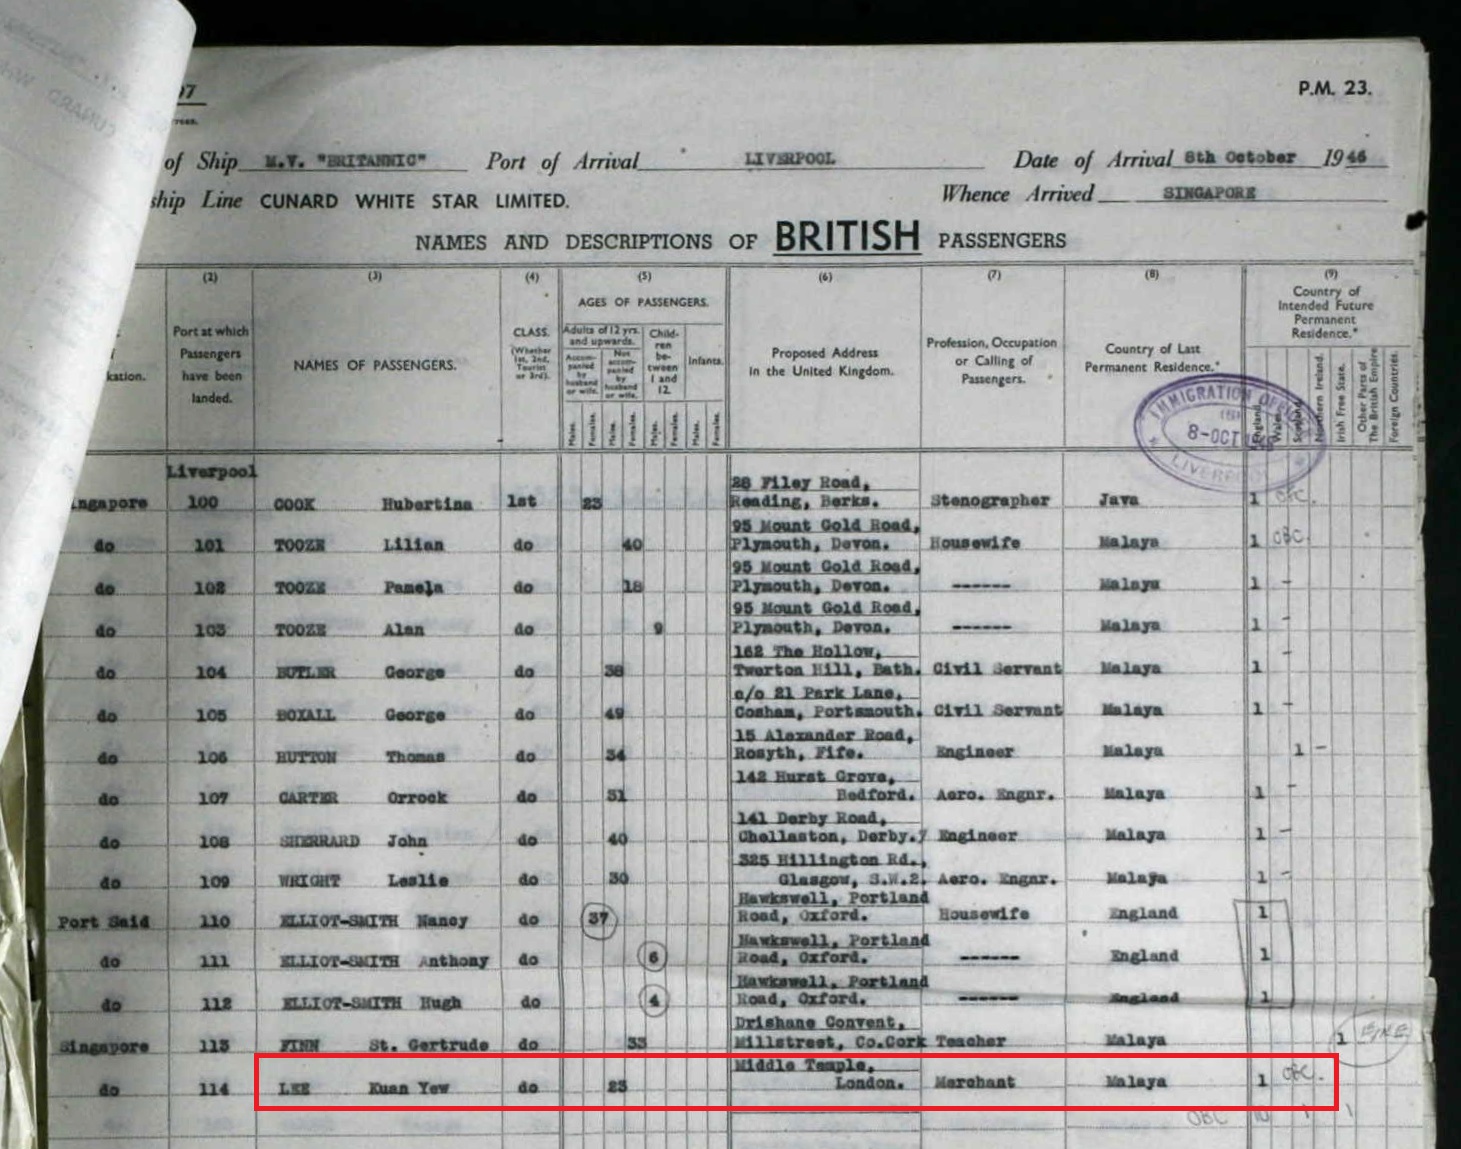 P.M. 23.
of Ship M.V. "BRITANNIC" Port of Arrival LIVERPOOL Date of Arrival 8th October 1946
ship Line CUNARD WHITE STAR LIMITED. Whence Arrived SINGAPORE
NAMES AND DESCRIPTIONS OF BRITISH PASSENGERS
(2) (3) (4) (5) (6) (7) (8) (9)
Port at which Passengers have been landed.
NAMES OF PASSENGERS.
CLASS. (Whether 1st, 2nd, Tourist or 3rd).
AGES OF PASSENGERS.
Adults of 12 yrs. and upwards.
Accompanied by husband or wife.
Not accompanied by husband or wife.
Children between 1 and 12.
Infants.
Males. Females. Males. Females. Males. Females. Males. Females.
Proposed Address in the United Kingdom.
Profession, Occupation or Calling of Passengers.
Country of Last Permanent Residence.*
Country of Intended Future Permanent Residence.*
England. Wales. Scotland. Northern Ireland. Irish Free State. Other Parts of The British Empire. Foreign Countries.
IMMIGRATION OFFICER
8-OCT
LIVERPOOL
Liverpool
28 Filey Road,
ngapore 100 COOK Hubertina 1st 23 Reading, Berks. Stenographer Java 1 OBC.
95 Mount Gold Road,
do 101 TOOZE Lilian do 40 Plymouth, Devon. Housewife Malaya 1 OBC.
95 Mount Gold Road,
do 102 TOOZE Pamela do 18 Plymouth, Devon. ------ Malaya 1 -
95 Mount Gold Road,
do 103 TOOZE Alan do 9 Plymouth, Devon. ------ Malaya 1 -
162 The Hollow,
do 104 BUTLER George do 38 Twerton Hill, Bath. Civil Servant Malaya 1 -
c/o 21 Park Lane,
do 105 BOXALL George do 49 Cosham, Portsmouth. Civil Servant Malaya 1 -
15 Alexander Road,
do 106 HUTTON Thomas do 34 Rosyth, Fife. Engineer Malaya 1 -
142 Hurst Grove,
do 107 CARTER Orrock do 31 Bedford. Aero. Engnr. Malaya 1 -
141 Derby Road,
do 108 SHERRARD John do 40 Chellaston, Derby. Engineer Malaya 1 -
325 Hillington Rd.,
do 109 WRIGHT Leslie do 30 Glasgow, S.W.2. Aero. Engnr. Malaya 1 -
Hawkswell, Portland
Port Said 110 ELLIOT-SMITH Nancy do 37 Road, Oxford. Housewife England 1
Hawkswell, Portland
do 111 ELLIOT-SMITH Anthony do 6 Road, Oxford. ------ England 1
Hawkswell, Portland
do 112 ELLIOT-SMITH Hugh do 4 Road, Oxford. ------ England 1
Drishane Convent,
Singapore 113 FINN St. Gertrude do 33 Millstreet, Co.Cork Teacher Malaya 1 EIRE
Middle Temple,
do 114 LEE Kuan Yew do 23 London. Merchant Malaya 1 OBC.
OBC 10 1 1